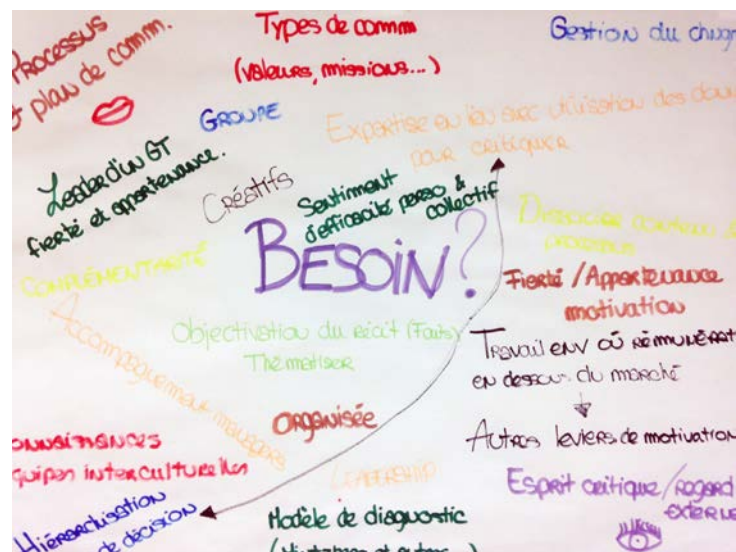 Processus
et plan de comm.
Types de comm
(valeurs, missions...)
Gestion du
Groupe
Expertise en lien avec utilisation des
pour critiquer
Leader d'un GT
fierté et appartenance.
Créatifs
Sentiment
d'efficacité perso &
collectif
Besoin?
Complémentarité
Dissocier contenu
processus
Fierté / Appartenance
motivation
Accompagnement managers
Objectivation du récit (Faits)
Thématiser
Travail env où
en dessous du marché
Autres leviers de motivation
Organisée
équipes interculturelles
Leadership
Esprit critique / regard
Hiérarchisation
de décision
Modèle de diagnostic